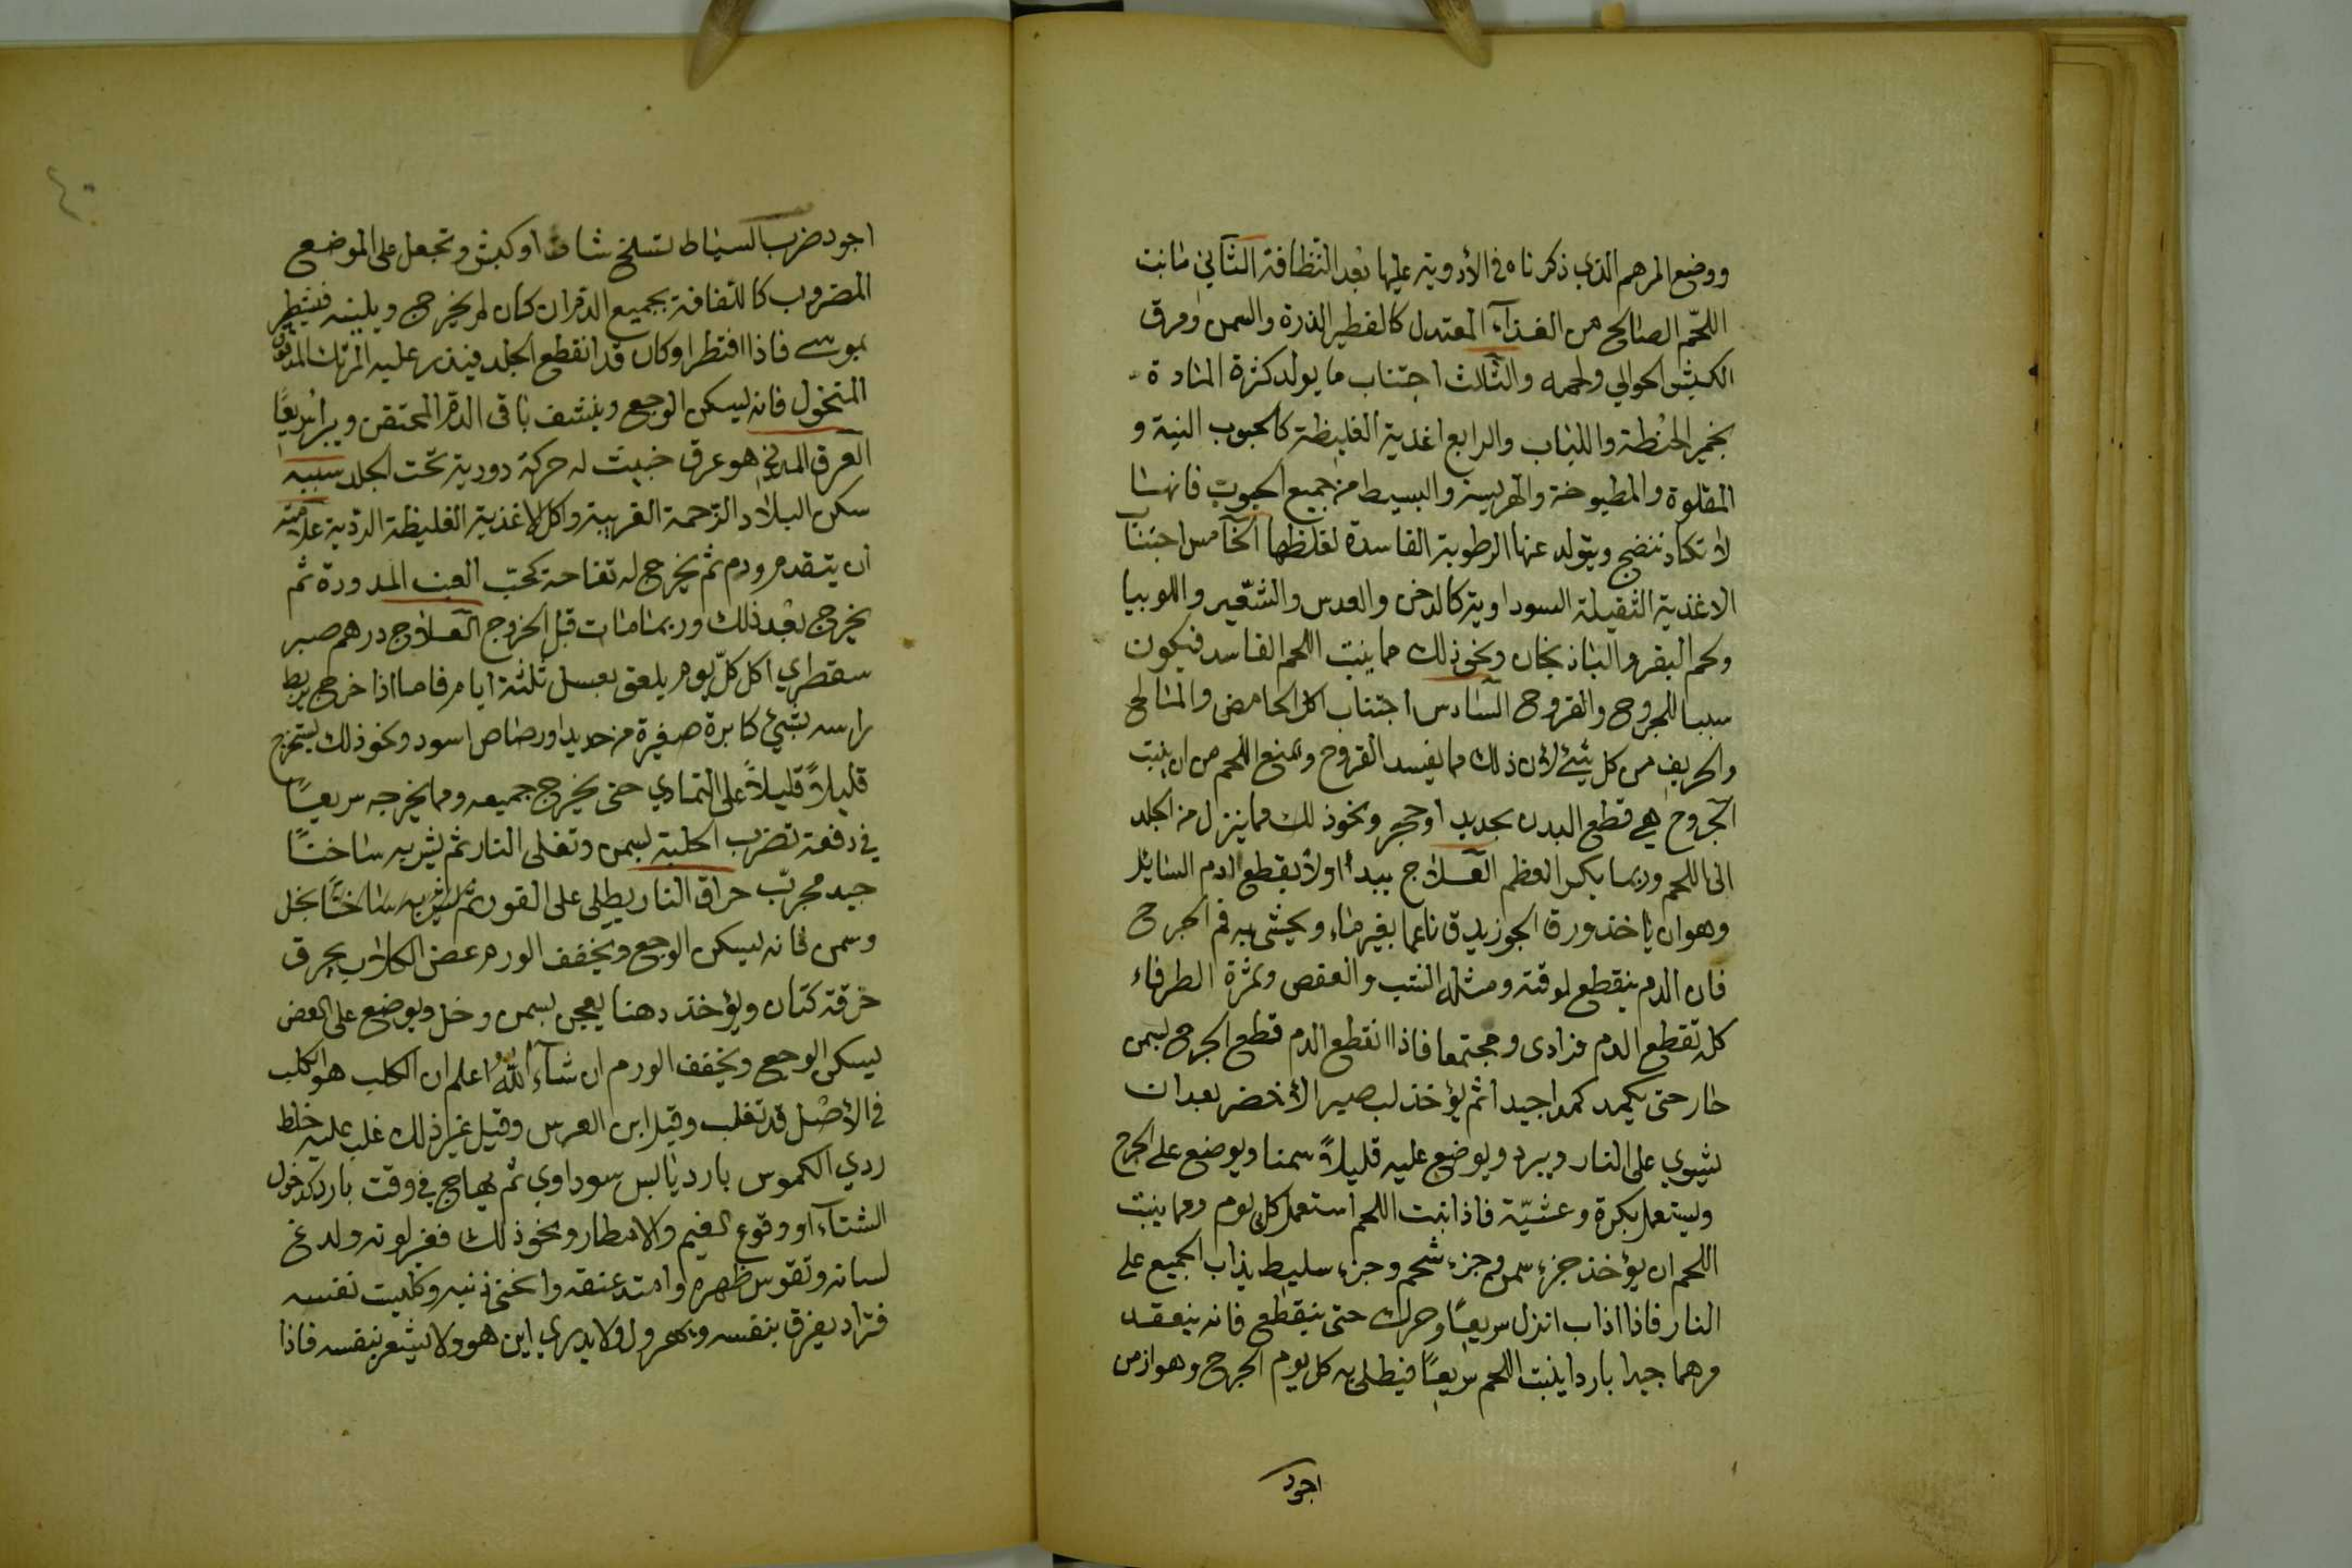 ووضع المرهم الذي ذكرناه في الأدوية عليها بعد النظافة الثاني مانبت
اللحّم الصالح من الغذآء المعتدل كالفطير الذرة والسمن ومرق
الكبش الحولي ولحمه والثالث اجتناب ما يولد كثرة المادة
بخمير الحنطة واللباب والرابع اغذية الغليظة كالحبوب النية و
المقلوة والمطبوخة والهريسة والبسيط من جميع الحبوب فانها
لا تكاد تنضج ويتولد عنها الرطوبة الفاسدة لغلظها الخامس اجتنا
الاغذية الثقيلة السوداوية كالدخن والعدس والشعير واللوبيا
ولحم البقر والباذنجان ونحو ذلك مما ينبت اللحم الفاسد فيكون
سببا للجروح والقروح السادس اجتناب اكل الحامض والمالح
والحريف من كل شيء لان ذلك مما يفسد القروح ويمنع اللحم من ان ينبت
الجروح هي قطع البدن بحديد او حجر ونحو ذلك مما ينزل من الجلد
الى اللحم وربما يكسر العظم العلاج يبدأ اولا بقطع الدم السائل
وهو ان ياخذ ورق الجوز يدق ناعما بغير ماء ويحشى به فم الجرح
فان الدم ينقطع لوقته ومثله الشب والعفص وثمرة الطرفاء
كله تقطع الدم فرادى ومجتمعا فاذا انقطع الدم قطع الجرح بسمن
حار حتى يكمد كمدا جيدا ثم يؤخذ لب صبر الأخضر بعد ان
يشوي على النار ويبرد ويوضع عليه قليلاً سمنا ويوضع على الجرح
ويستعمل بكرة وعشيّة فاذا نبت اللحم استعمل كل يوم ومما ينبت
اللحم ان يؤخذ جزء سمن وجزء شحم وجزء سليط يذاب الجميع على
النار فاذا اذاب انزل سريعًا وحرك حتى ينقطع فانه ينعقد
مرهما جيدا باردا ينبت اللحم سريعًا فيطلى به كل يوم الجرح وهو از من
اجود
اجود ضرب السياط تسلخ شاة او كبش وتجعل على الموضع
المضروب كاللفافة بجميع الدم ان كان لم يخرج ويلينه فيشطر
بموسى فاذا افتطر او كان قد انقطع الجلد فيذر عليه المرتك المدقوق
المنخول فانه يسكن الوجع وينشف باقي الدم المحتقن ويبرأ سريعًا
العرق المدني هو عرق خبيث له حركة دورية تحت الجلد سببه
سكن البلاد الوخمة الغريبة واكل الاغذية الغليظة الردية علامته
ان يتقدم ورم ثم يخرج له نفاخة كحب العنب المدورة ثم
يخرج بعد ذلك وربما مات قبل الخروج العلاج درهم صبر
سقطري اكل كلّ يوم يلعق بعسل ثلثة ايام فاما اذا خرج يربط
راسه بشئ كابرة صغيرة من حديد او رصاص اسود ونحو ذلك يستخرج
قليلاً قليلاً على التمادي حتى يخرج جميعه ومما يخرجه سريعًا
في دفعة تضرب الحلبة بسمن وتغلى النار ثم يشربه ساخنًا
جيد مجرّب حراق النار يطلى على الفور ثم يشربه ساخنًا بخل
وسمن فانه يسكن الوجع ويخفف الورم عض الكلاب يحرق
خرقة كتان ويؤخذ دهنا يعجن بسمن وخل ويوضع على العض
يسكن الوجع ويخفف الورم ان شآء اللّٰه اعلم ان الكلب هو الكلب
في الأصل قد تغلب وقيل ابن العرس وقيل غير ذلك غلب عليه خلط
ردي الكموس بارد يابس سوداوي ثم يهاج في وقت بارد كدخول
الشتآء او وقوع الغيم والامطار ونحو ذلك فغير لونه ولدغ
لسانه وتقوس ظهره وامتد عنقه وانحنى ذنبه وكلبت نفسه
فتراه يغرق بنفسه ويهرول ولا يدري اين هو ولا يشعر بنفسه فاذا